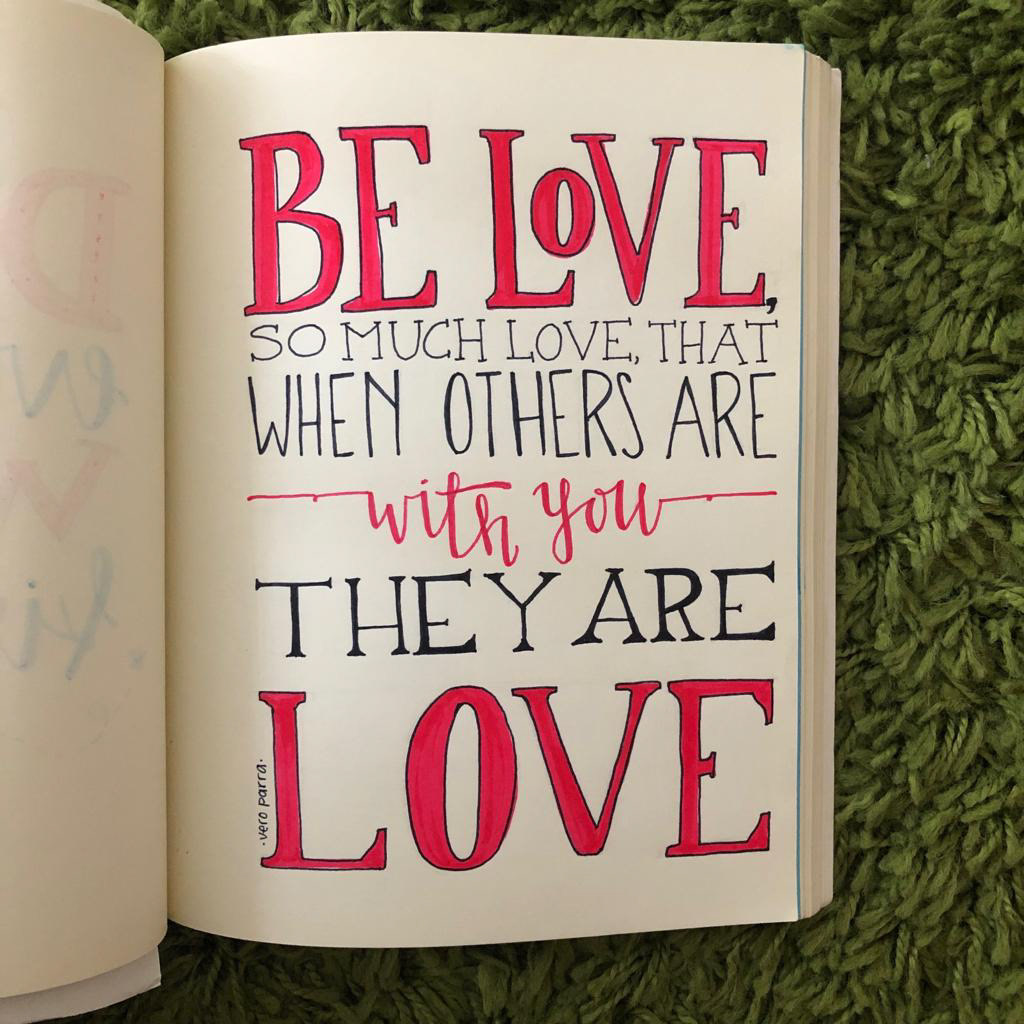 BE LOVE,
SO MUCH LOVE, THAT
WHEN OTHERS ARE
with you
THEY ARE
LOVE
·vero parra·